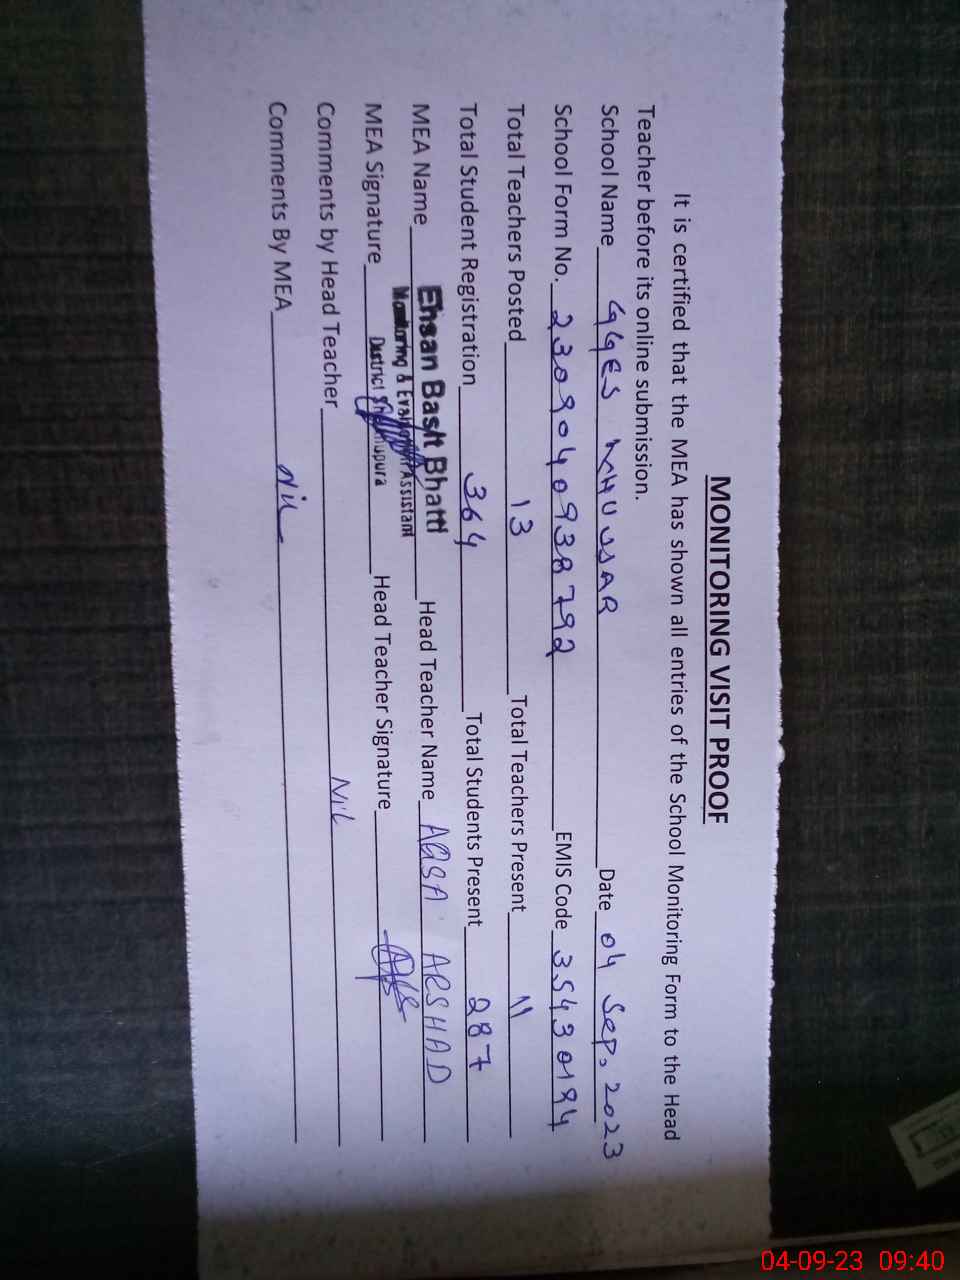 MONITORING VISIT PROOF
It is certified that the MEA has shown all entries of the School Monitoring Form to the Head
Teacher before its online submission.
School Name GGES MHUSSAR Date 04 Sep, 2023
School Form No. 2309040938792 EMIS Code 35430194
Total Teachers Posted 13 Total Teachers Present 11
Total Student Registration 364 Total Students Present 287
MEA Name Ehsan Basit Bhatti Head Teacher Name AQSA ARSHAD
Monitoring & Evaluation Assistant
MEA Signature District Sheikhupura Head Teacher Signature
Comments by Head Teacher Nil
Comments By MEA Nil
04-09-23 09:40